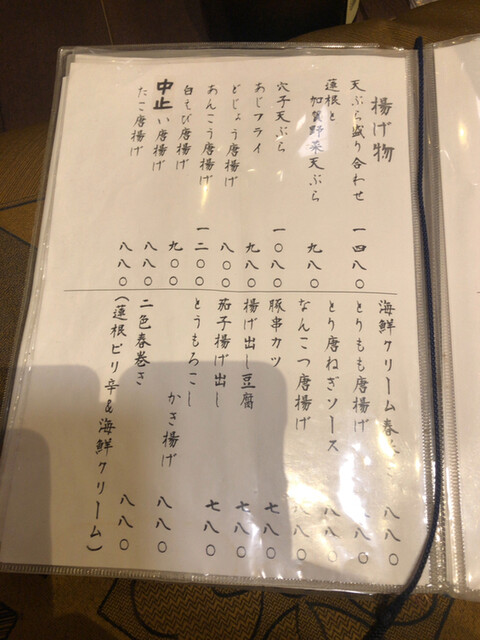 揚げ物
天ぷら盛り合わせ 一四八〇
蓮根と
加賀野菜天ぷら 九八〇
穴子天ぷら 一〇八〇
あじフライ 九八〇
どじょう唐揚げ 八〇〇
あんこう唐揚げ 一二〇〇
白えび唐揚げ 九〇〇
中止い唐揚げ 八八〇
たこ唐揚げ 八八〇
海鮮クリーム春巻き 八八〇
とりもも唐揚げ 八八〇
とり唐ねぎソース 八八〇
なんこつ唐揚げ 八八〇
豚串カツ 七八〇
揚げ出し豆腐 七八〇
茄子揚げ出し 七八〇
とうもろこし
かき揚げ 八八〇
二色春巻き
(蓮根ピリ辛&海鮮クリーム) 八八〇